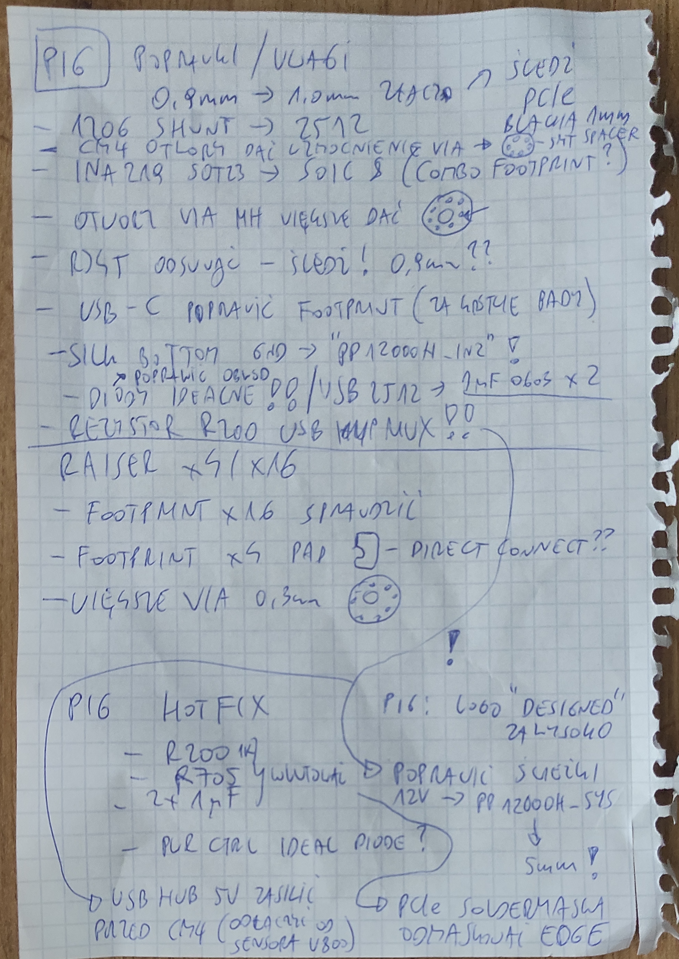 P16 POPRAWKI / UWAGI
0,9mm → 1.0mm ŚLEDŹ PCIe
BLACHA 1mm
- 1206 SHUNT → 2512
- CM4 OTWORY DAĆ WZMOCNIENIE VIA → - SMT SPACER
- INA219 SOT23 → SOIC 8 (COMBO FOOTPRINT?)
- OTWORY VIA MH WIĘKSZE DAĆ
- RJ45 ODSUNĄĆ - ŚLEDŹ! 0,9mm??
- USB-C POPRAWIĆ FOOTPRINT (ZA GRUBE PADY)
- SILK BOTTOM GND → "PP12000H_IN2" !
POPRAWIĆ OBWÓD
- DIODY IDEALNE !! / USB 2512 → 1µF 0603 x 2
- REZYSTOR R200 USB MUX !!
RAISER x4 / x16
- FOOTPRINT x16 SPRAWDZIĆ
- FOOTPRINT x4 PAD - DIRECT CONNECT??
- WIĘKSZE VIA 0,3mm
!
P16 HOTFIX
- R200
- R705 WLUTOWAĆ
- 2x 1µF
- PWR CTRL IDEAL DIODE?
USB HUB 5V ZASILIĆ
PRZED CM4 (ODŁĄCZYĆ OD
SENSORA
P16: LOGO "DESIGNED"
ZA WYSOKO
POPRAWIĆ ŚCIEŻKI
12V → PP12000H_SYS
↓
5mm !
PCIe SOLDERMASKA
ODMASKOWAĆ EDGE